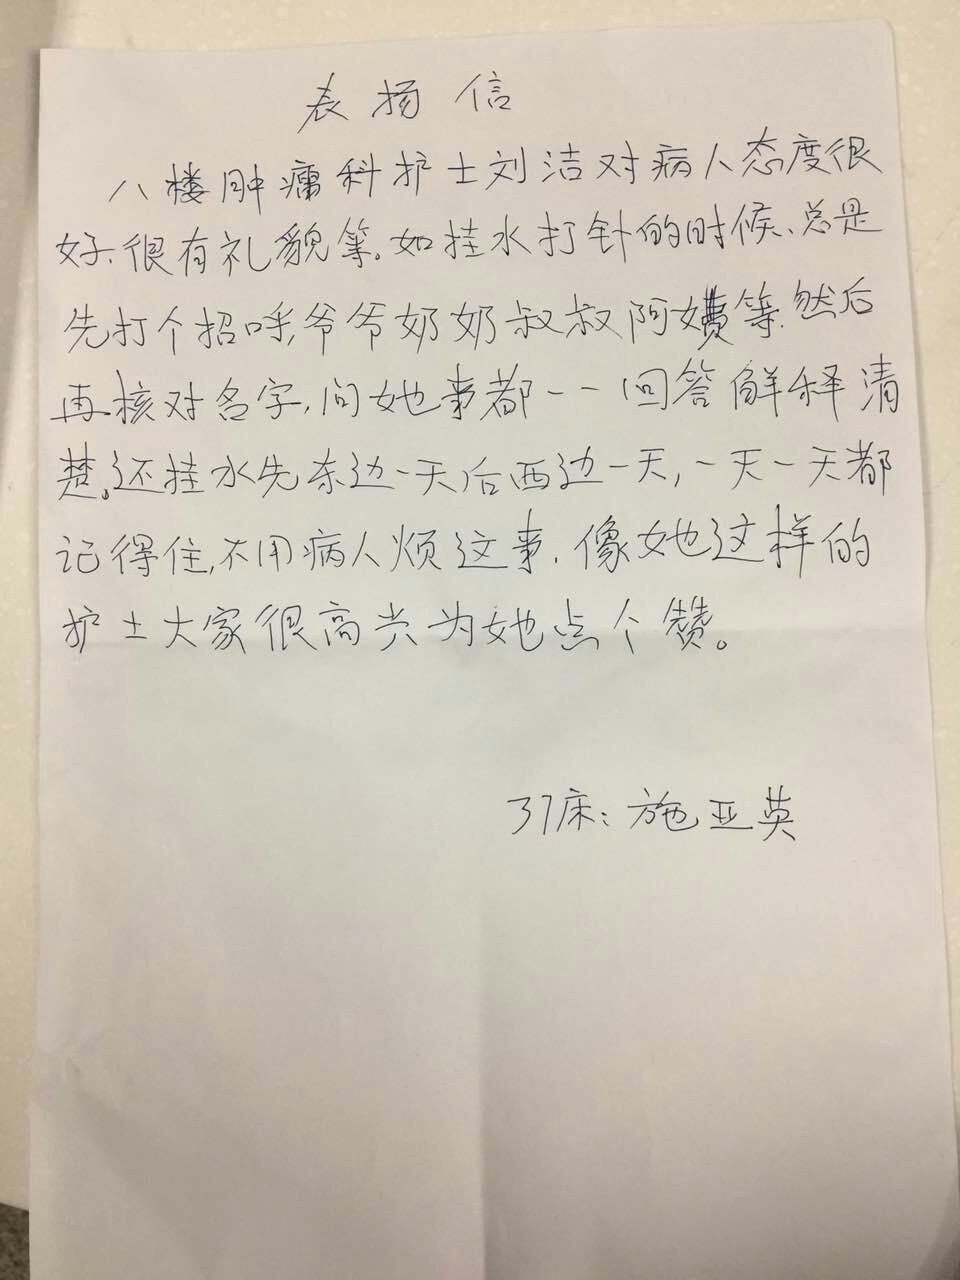 表扬信
八楼肿瘤科护士刘洁对病人态度很
好、很有礼貌等。如挂水打针的时候、总是
先打个招呼,爷爷奶奶叔叔阿姨等.然后
再核对名字,问她事都一一回答解释清
楚。还挂水先东边一天后西边一天,一天一天都
记得住,不用病人烦这事.像她这样的
护士大家很高兴为她点个赞。
37床:施亚英